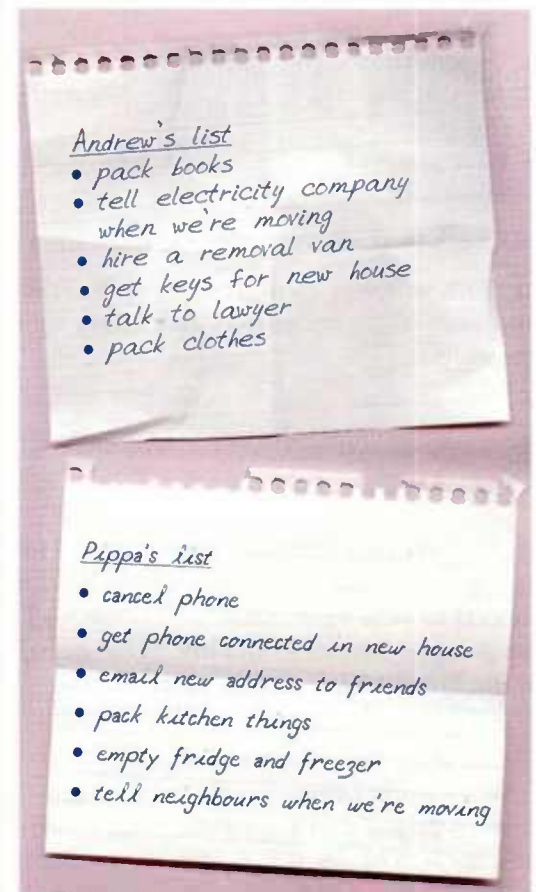 Andrew's list
• pack books
• tell electricity company
when we're moving
• hire a removal van
• get keys for new house
• talk to lawyer
• pack clothes
Pippa's list
• cancel phone
• get phone connected in new house
• email new address to friends
• pack kitchen things
• empty fridge and freezer
• tell neighbours when we're moving